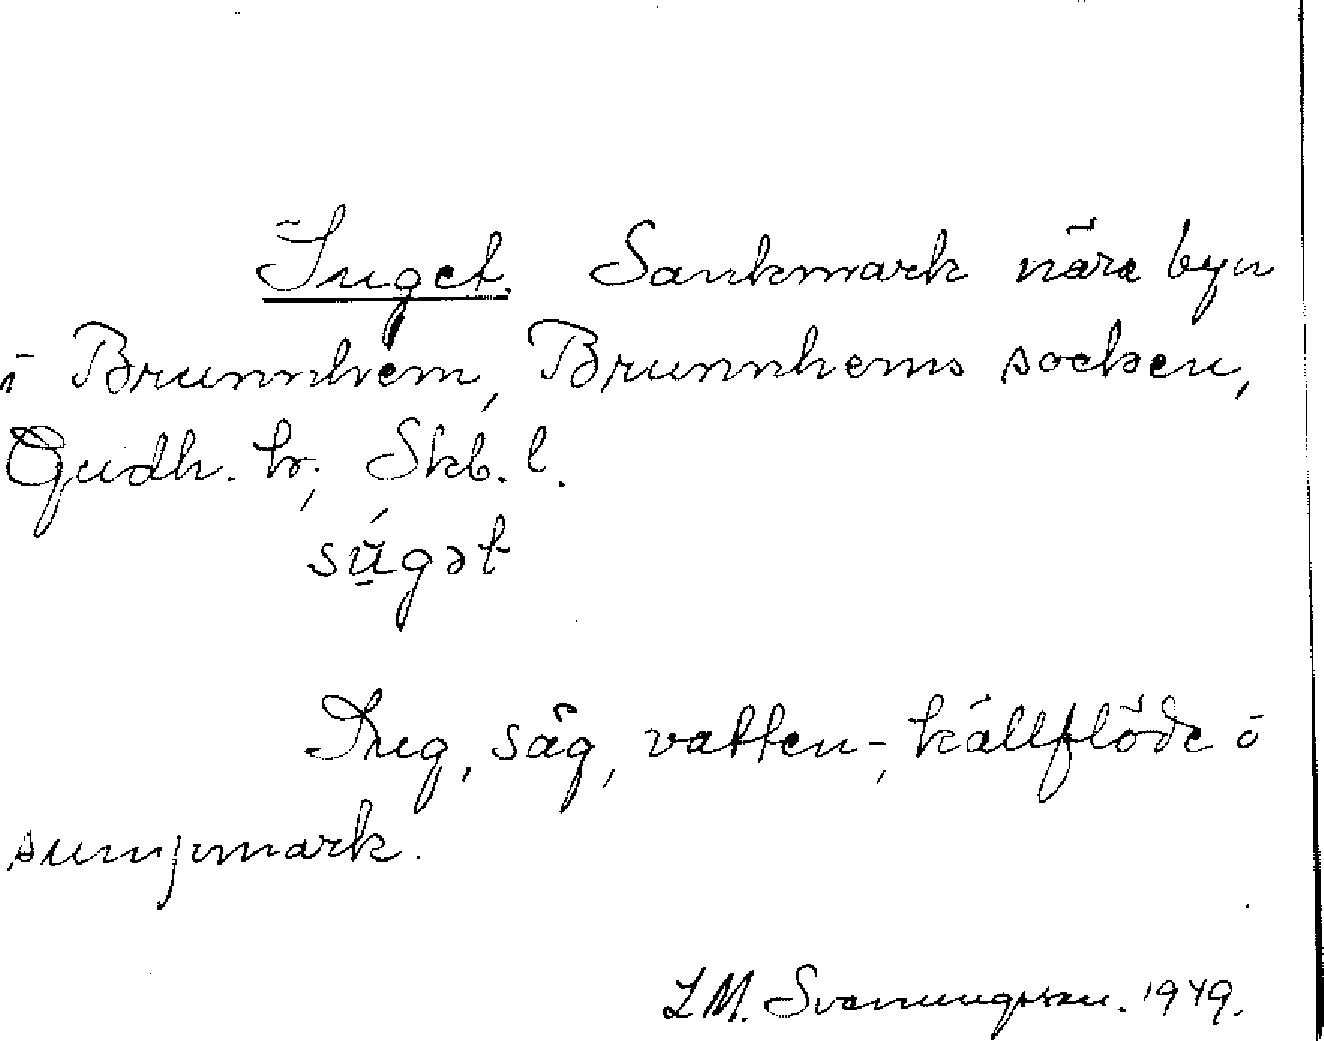 Suget. Sankmark nära byn
i Brunnhem, Brunnhems socken,
Gudh. hr; Skb. l.
súgət
Sug, såg, vatten-, källflöde i
sumpmark.
L M. Svanungsson. 1949.